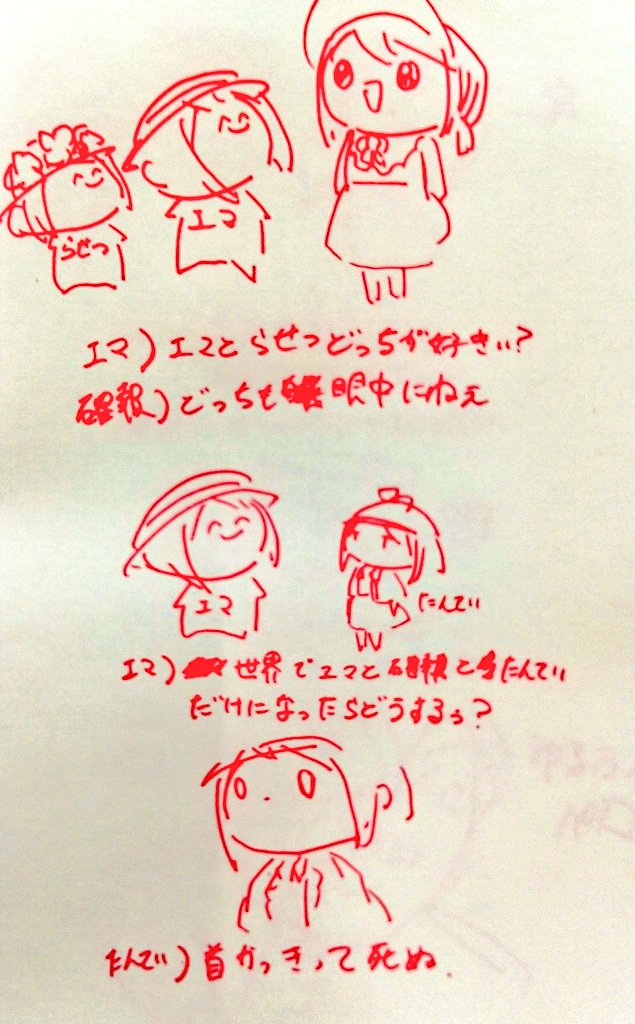 らせつ
エマ
エマ)エマとらせつどっちが好きぃ?
確報)どっちも眼中にねぇ
エマ
たんてい
エマ)世界でエマと確報とたんてい
だけになったらどうするぅ?
たんてい)首かっきって死ぬ.